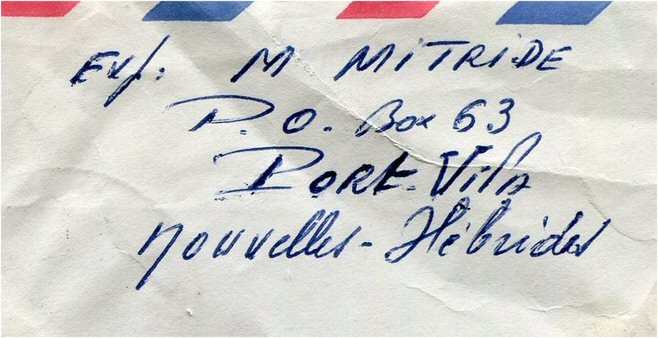 Exp: M MITRIDE
P.O. Box 63
PORT-VILA
Nouvelles-Hébrides